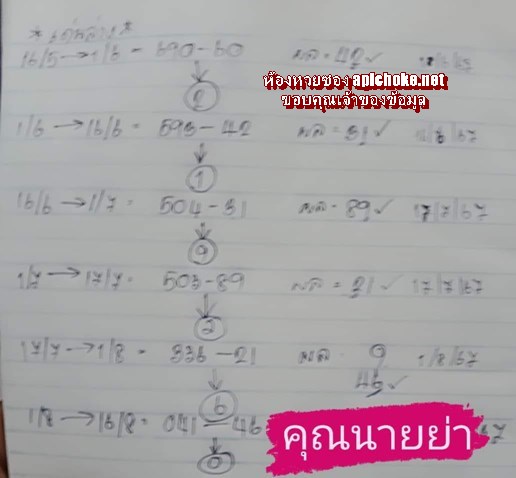 *เด่นล่าง*
16/5 → 1/6 = 690 - 60 ผล = 42 ✓
ห้องหวยซอง apichoke.net
ขอบคุณเจ้าของข้อมูล
2
1/6 → 16/6 = 593 - 42 ผล = 31 ✓
1
16/6 → 1/7 = 504 - 31 ผล = 89 ✓ 17/7/67
9
1/7 → 17/7 = 503 - 89 ผล = 21 ✓ 17/7/67
2
17/7 → 1/8 = 336 - 21 ผล = 9 1/8/67
46 ✓
6
1/8 → 16/8 = 041 - 46
คุณนายย่า
0